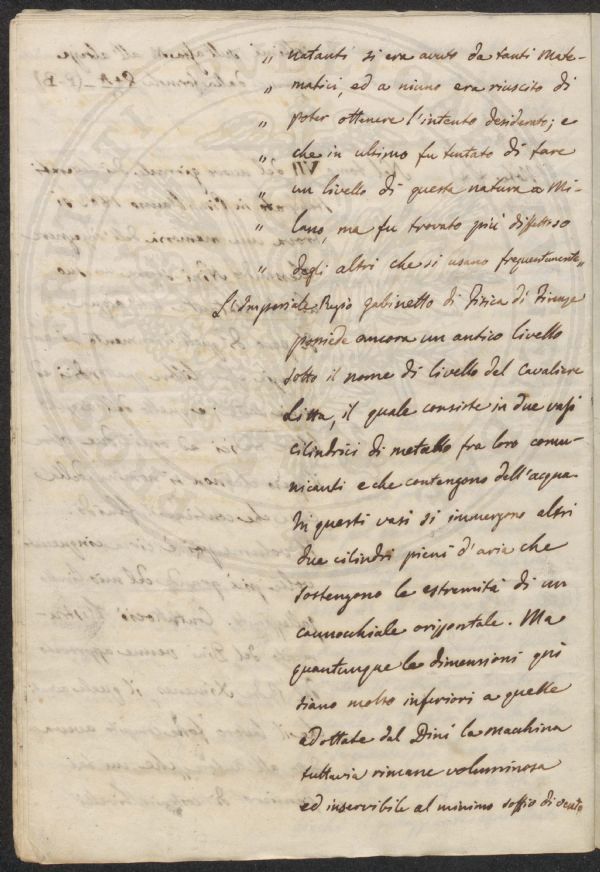 „ natanti si era avuto da tanti mate-
„ matici, ed a niuno era riuscito di
„ poter ottenere l'intento desiderato; e
„ che in ultimo fu tentato di fare
„ un livello di questa natura a Mi-
„ lano, ma fu trovato più difettoso
„ degli altri che si usano frequentemente„
L'Imperiale Regio gabinetto di Fisica di Firenze
possiede ancora un antico livello
sotto il nome di livello del Cavaliere
Litta, il quale consiste in due vasi
cilindrici di metallo fra loro comu-
nicanti e che contengono dell'acqua
In questi vasi si immergono altri
due cilindri pieni d'aria che
sostengono le estremità di un
cannocchiale orizzontale. Ma
quantunque le dimensioni qui
siano molto inferiori a quelle
adottate dal Dini la macchina
tuttavia rimane voluminosa
ed inservibile al minimo soffio di vento